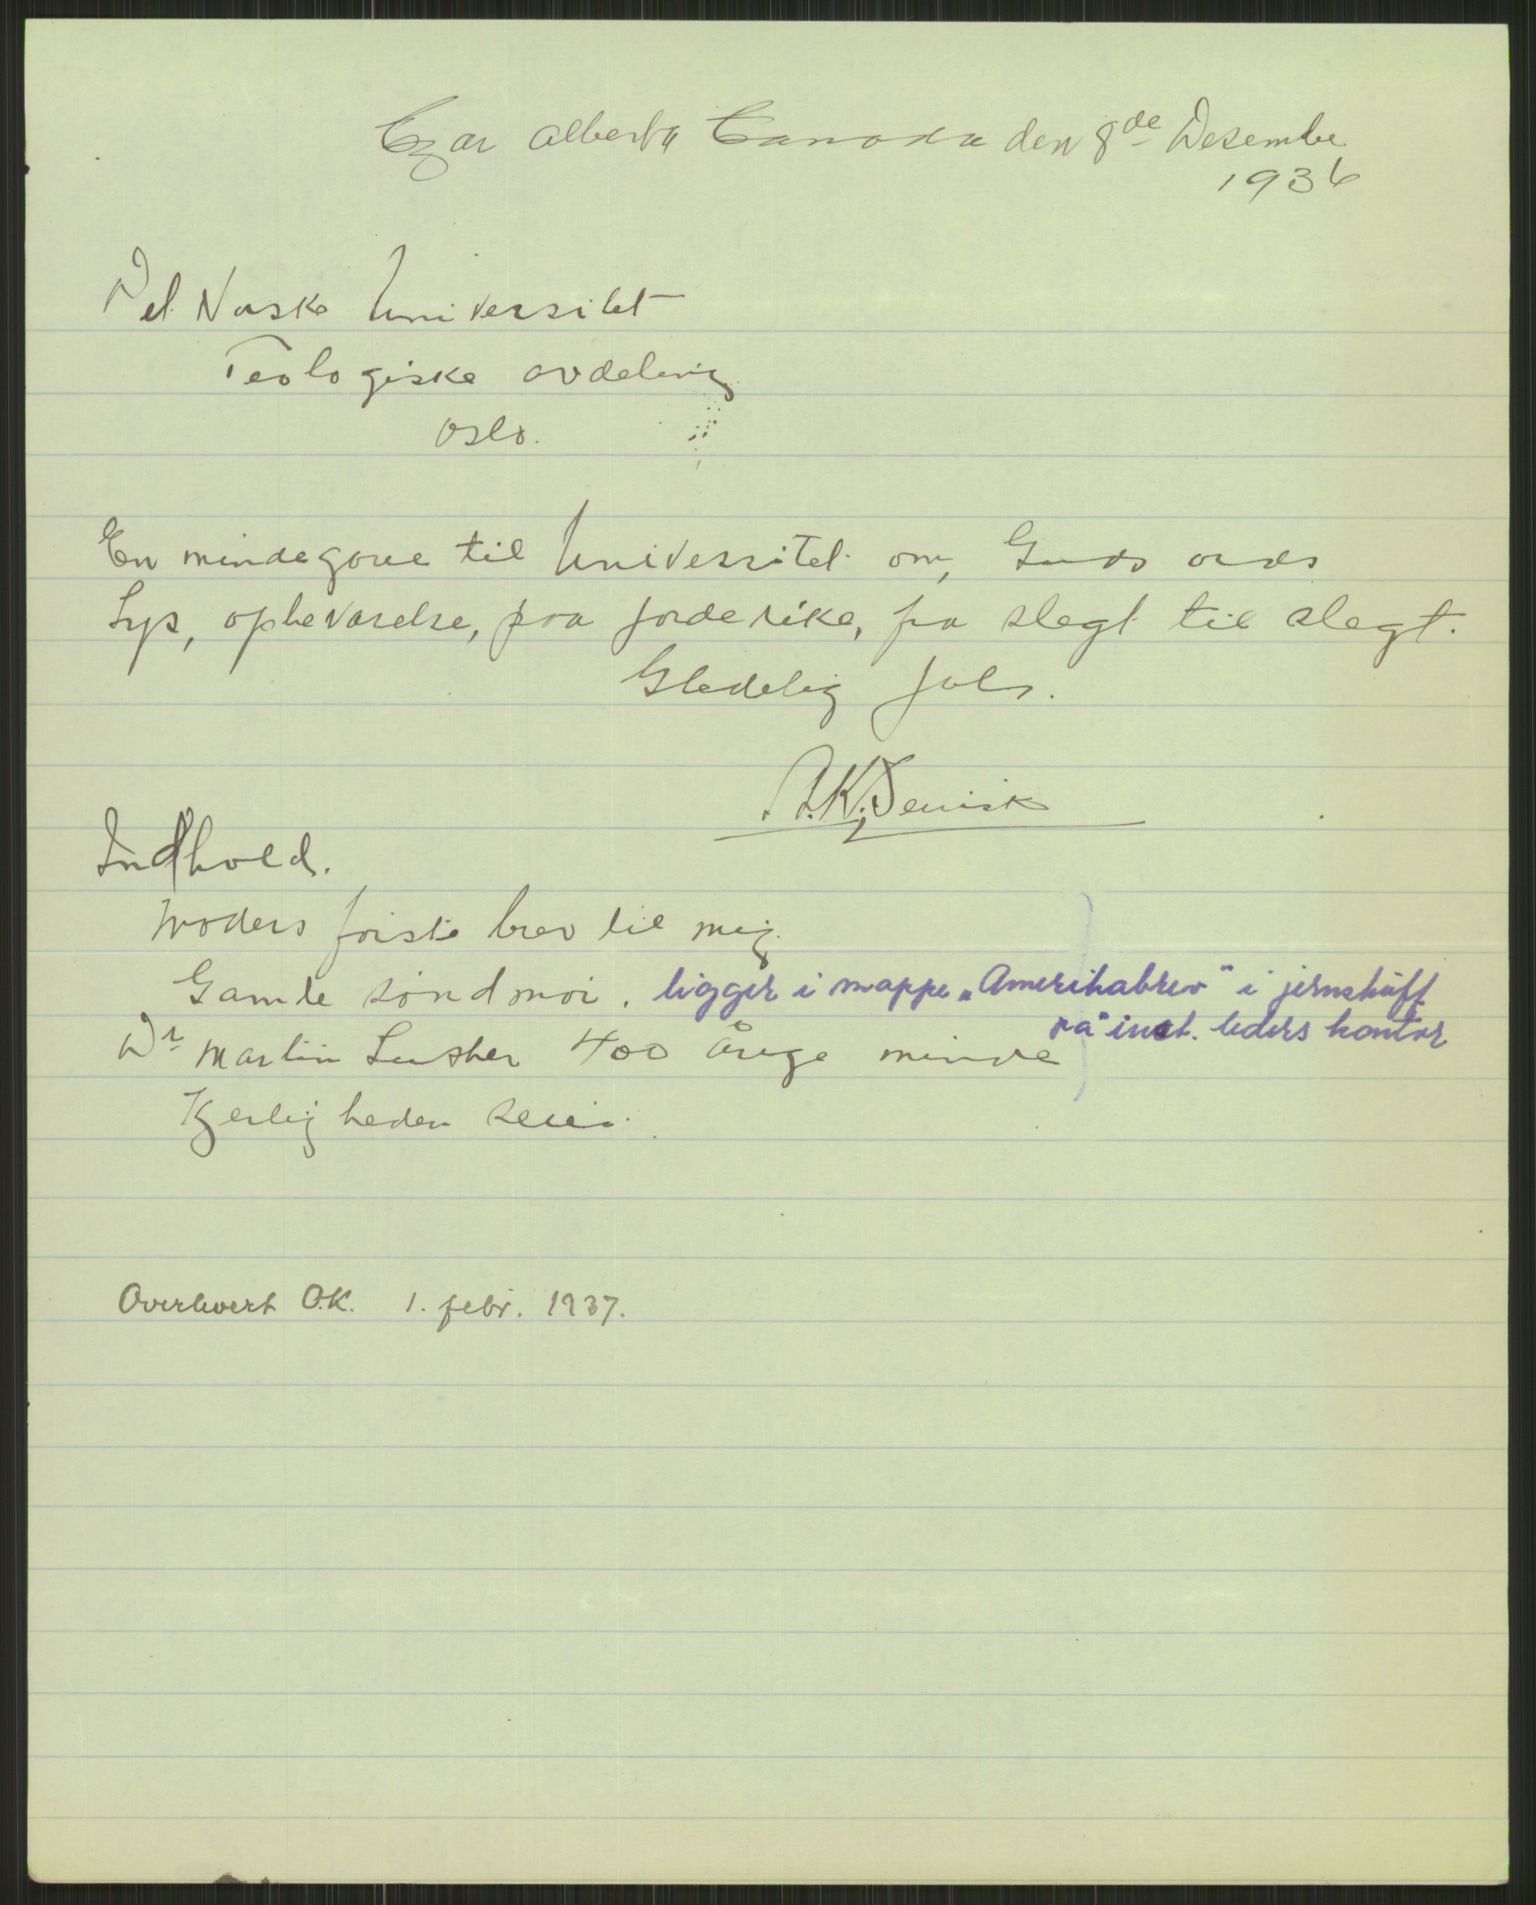 Czar Alberta Canada den 8de Desember
1936
Det Norske Universitet
Teologiske avdeling
Oslo.
En mindegave til Universitet om, Guds ords
Lys, opbevarelse, paa jorderike, fra slegt til slegt.
Gledelig Jule.
K.
Indhold.
Moders förste brev til mig.
Gamle söndmör. ligger i mappe „Amerikabrev" i jernskuff
på inst. leders kontor
Dr Martin Luther 400 årige minde
Kjerligheden
Overlevert O.K. 1. febr. 1937.